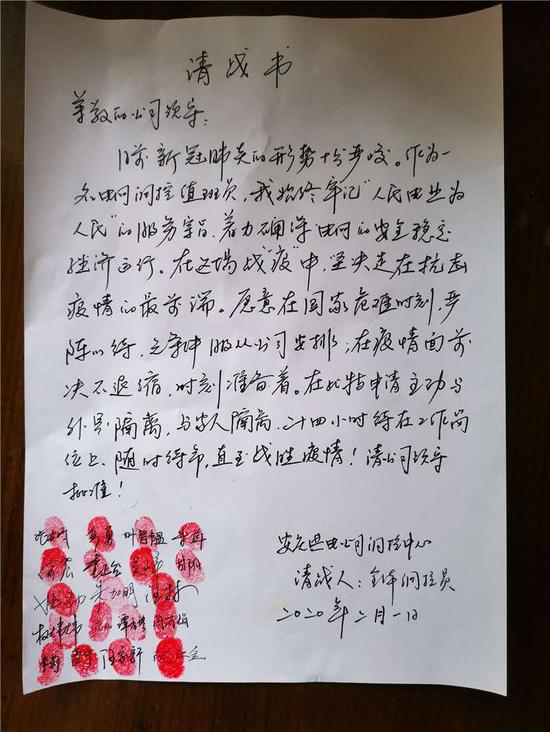 请战书
尊敬的公司领导:
目前新冠肺炎的形势十分严峻。作为一
名电网调控值班员,我始终牢记"人民电业为
人民"的服务宗旨,着力确保电网的安全稳定
经济运行。在这场战"疫"中,坚决走在抗击
疫情的最前端。愿意在国家危难时刻,严
阵以待,无条件服从公司安排;在疫情面前
决不退缩,时刻准备着。在此特申请主动与
外界隔离,与家人隔离,二十四小时待在工作岗
位上,随时待命,直至战胜疫情!请公司领导
批准!
供电公司调控中心
请战人:全体调控员
二〇二〇年二月一日